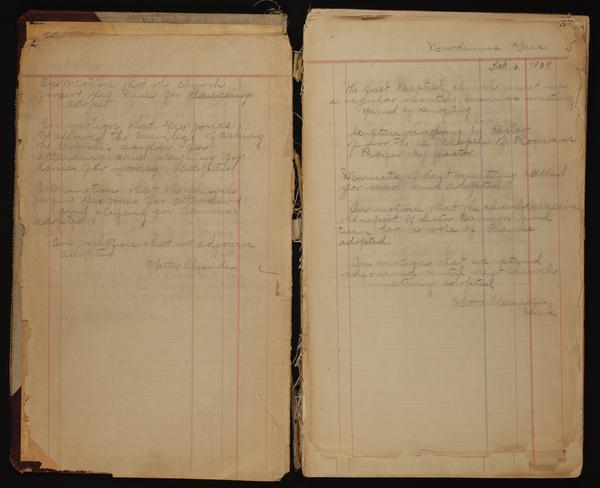 On motion that the church
forgive Geo for dancing
adopted
On motion that Geo Jones
be allowed the privilege of asking
the churches pardon for
attending and playing for
dances for money. Adopted
On motion that the church
forgive Geo Jones for attending
and playing for dances
adopted
On motion that we adjourn
adopted
Hattie Alexander
Nicodemus Kans
Feb 6, 1909
The first Baptist church met in
a regular monthly business meeting
opened by singing
Scripture reading by Pastor
from the 12 chapter of Romans
Prayer by pastor
Minuets of last meeting called
for read and adopted
On motion that the church receive
the report of sister and
turn her a vote of thanks
adopted.
On motion that we stand
adjourned until next church
meeting adopted
Hattie Alexander
clerk